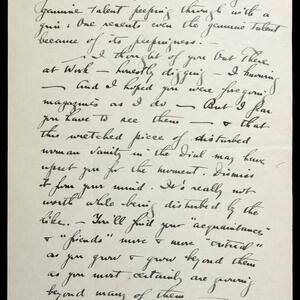 genuine talent peeping through with a
grin: One resents even the genuine talent
because of its peepingness. —
— I thought of you Out There
at Work — honestly digging — I knowing
— And I hoped you were foregoing
magazines as I do — But I fear
you have to see them — & that
this wretched piece of disturbed
woman vanity in the Dial may have
upset you for the moment. Dismiss
it from your mind. It's really not
worth while being disturbed by the
like. — You'll find your "acquaintances"
& "friends" more & more
as you grow & grow beyond them
as you most certainly are growing
beyond many of them —